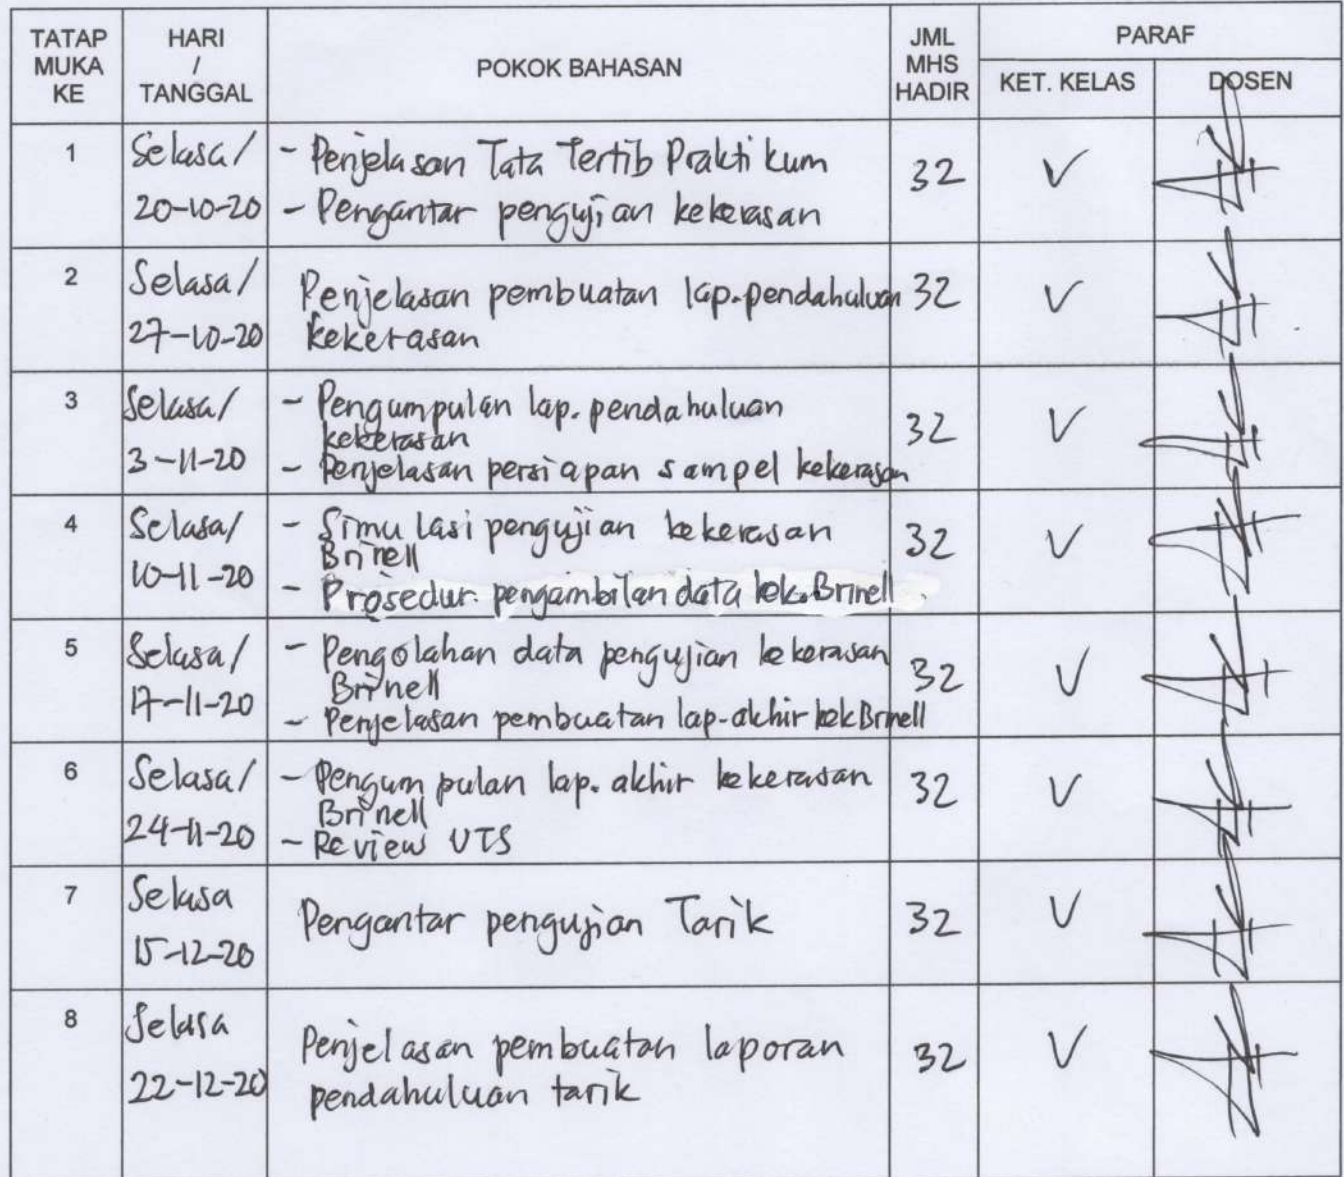 TATAP MUKA KE
HARI / TANGGAL
POKOK BAHASAN
JML MHS HADIR
PARAF
KET. KELAS
DOSEN
1
Selasa/
20-10-20
- Penjelasan Tata Tertib Praktikum
- Pengantar pengujian kekerasan
32
V
2
Selasa/
27-10-20
Penjelasan pembuatan lap. pendahuluan
kekerasan
32
V
3
Selasa/
3-11-20
- Pengumpulan lap. pendahuluan
kekerasan
- Penjelasan persiapan sampel kekerasan
32
V
4
Selasa/
10-11-20
- Simulasi pengujian kekerasan
Brinell
- Prosedur pengambilan data kek. Brinell
32
V
5
Selasa/
17-11-20
- Pengolahan data pengujian kekerasan
Brinell
- Penjelasan pembuatan lap-akhir kek Brinell
32
V
6
Selasa/
24-11-20
- Pengumpulan lap. akhir kekerasan
Brinell
- Review UTS
32
V
7
Selasa
15-12-20
Pengantar pengujian Tarik
32
V
8
Selasa
22-12-20
Penjelasan pembuatan laporan
pendahuluan tarik
32
V